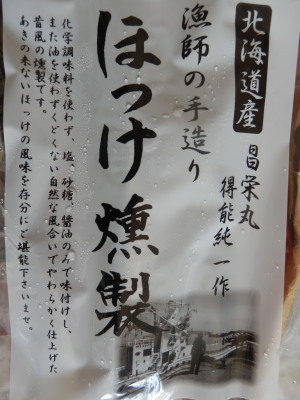 北海道産
昌栄丸
得能純一作
漁師の手造り
ほっけ燻製
化学調味料を使わず、塩、砂糖、醤油のみで味付けし、
また油を使わずくどくない自然な風合いでやわらかく仕上げた
昔風の燻製です。
あきの来ないほっけの風味を存分にご堪能下さいませ。